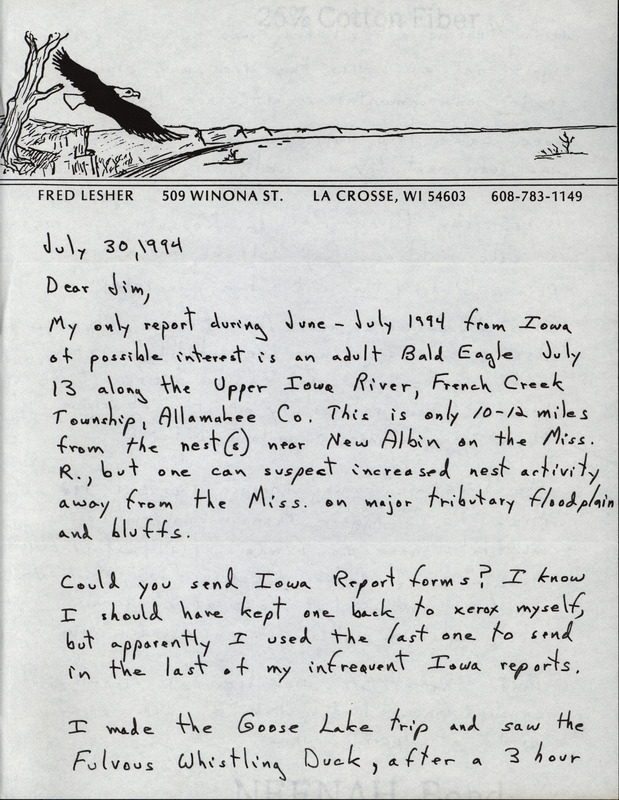 25% Cotton Fiber
FRED LESHER 509 WINONA ST. LA CROSSE, WI 54603 608-783-1149
July 30, 1994
Dear Jim,
My only report during June - July 1994 from Iowa
of possible interest is an adult Bald Eagle July
13 along the Upper Iowa River, French Creek
Township, Allamahee Co. This is only 10-12 miles
from the nest(s) near New Albin on the Miss.
R., but one can suspect increased nest activity
away from the Miss. on major tributary floodplain
and bluffs.
Could you send Iowa Report forms? I know
I should have kept one back to xerox myself,
but apparently I used the last one to send
in the last of my infrequent Iowa reports.
I made the Goose Lake trip and saw the
Fulvous Whistling Duck, after a 3 hour
NEENAH Bond